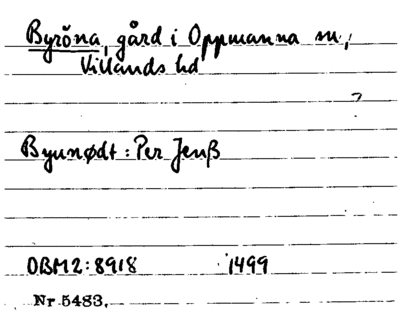 Byröna, gård i Oppmanna sn,
Villands hd
?
Byunødt: Per Jenß
OBM2:8918 1499
Nr 5483.